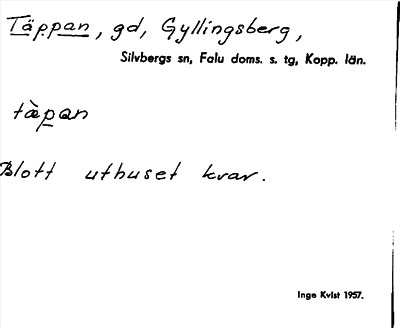 Täppan, gd, Gyllingsberg,
Silvbergs sn, Falu doms. s. tg, Kopp. län.
tàpan
Blott uthuset kvar.
Inge Kvist 1957.